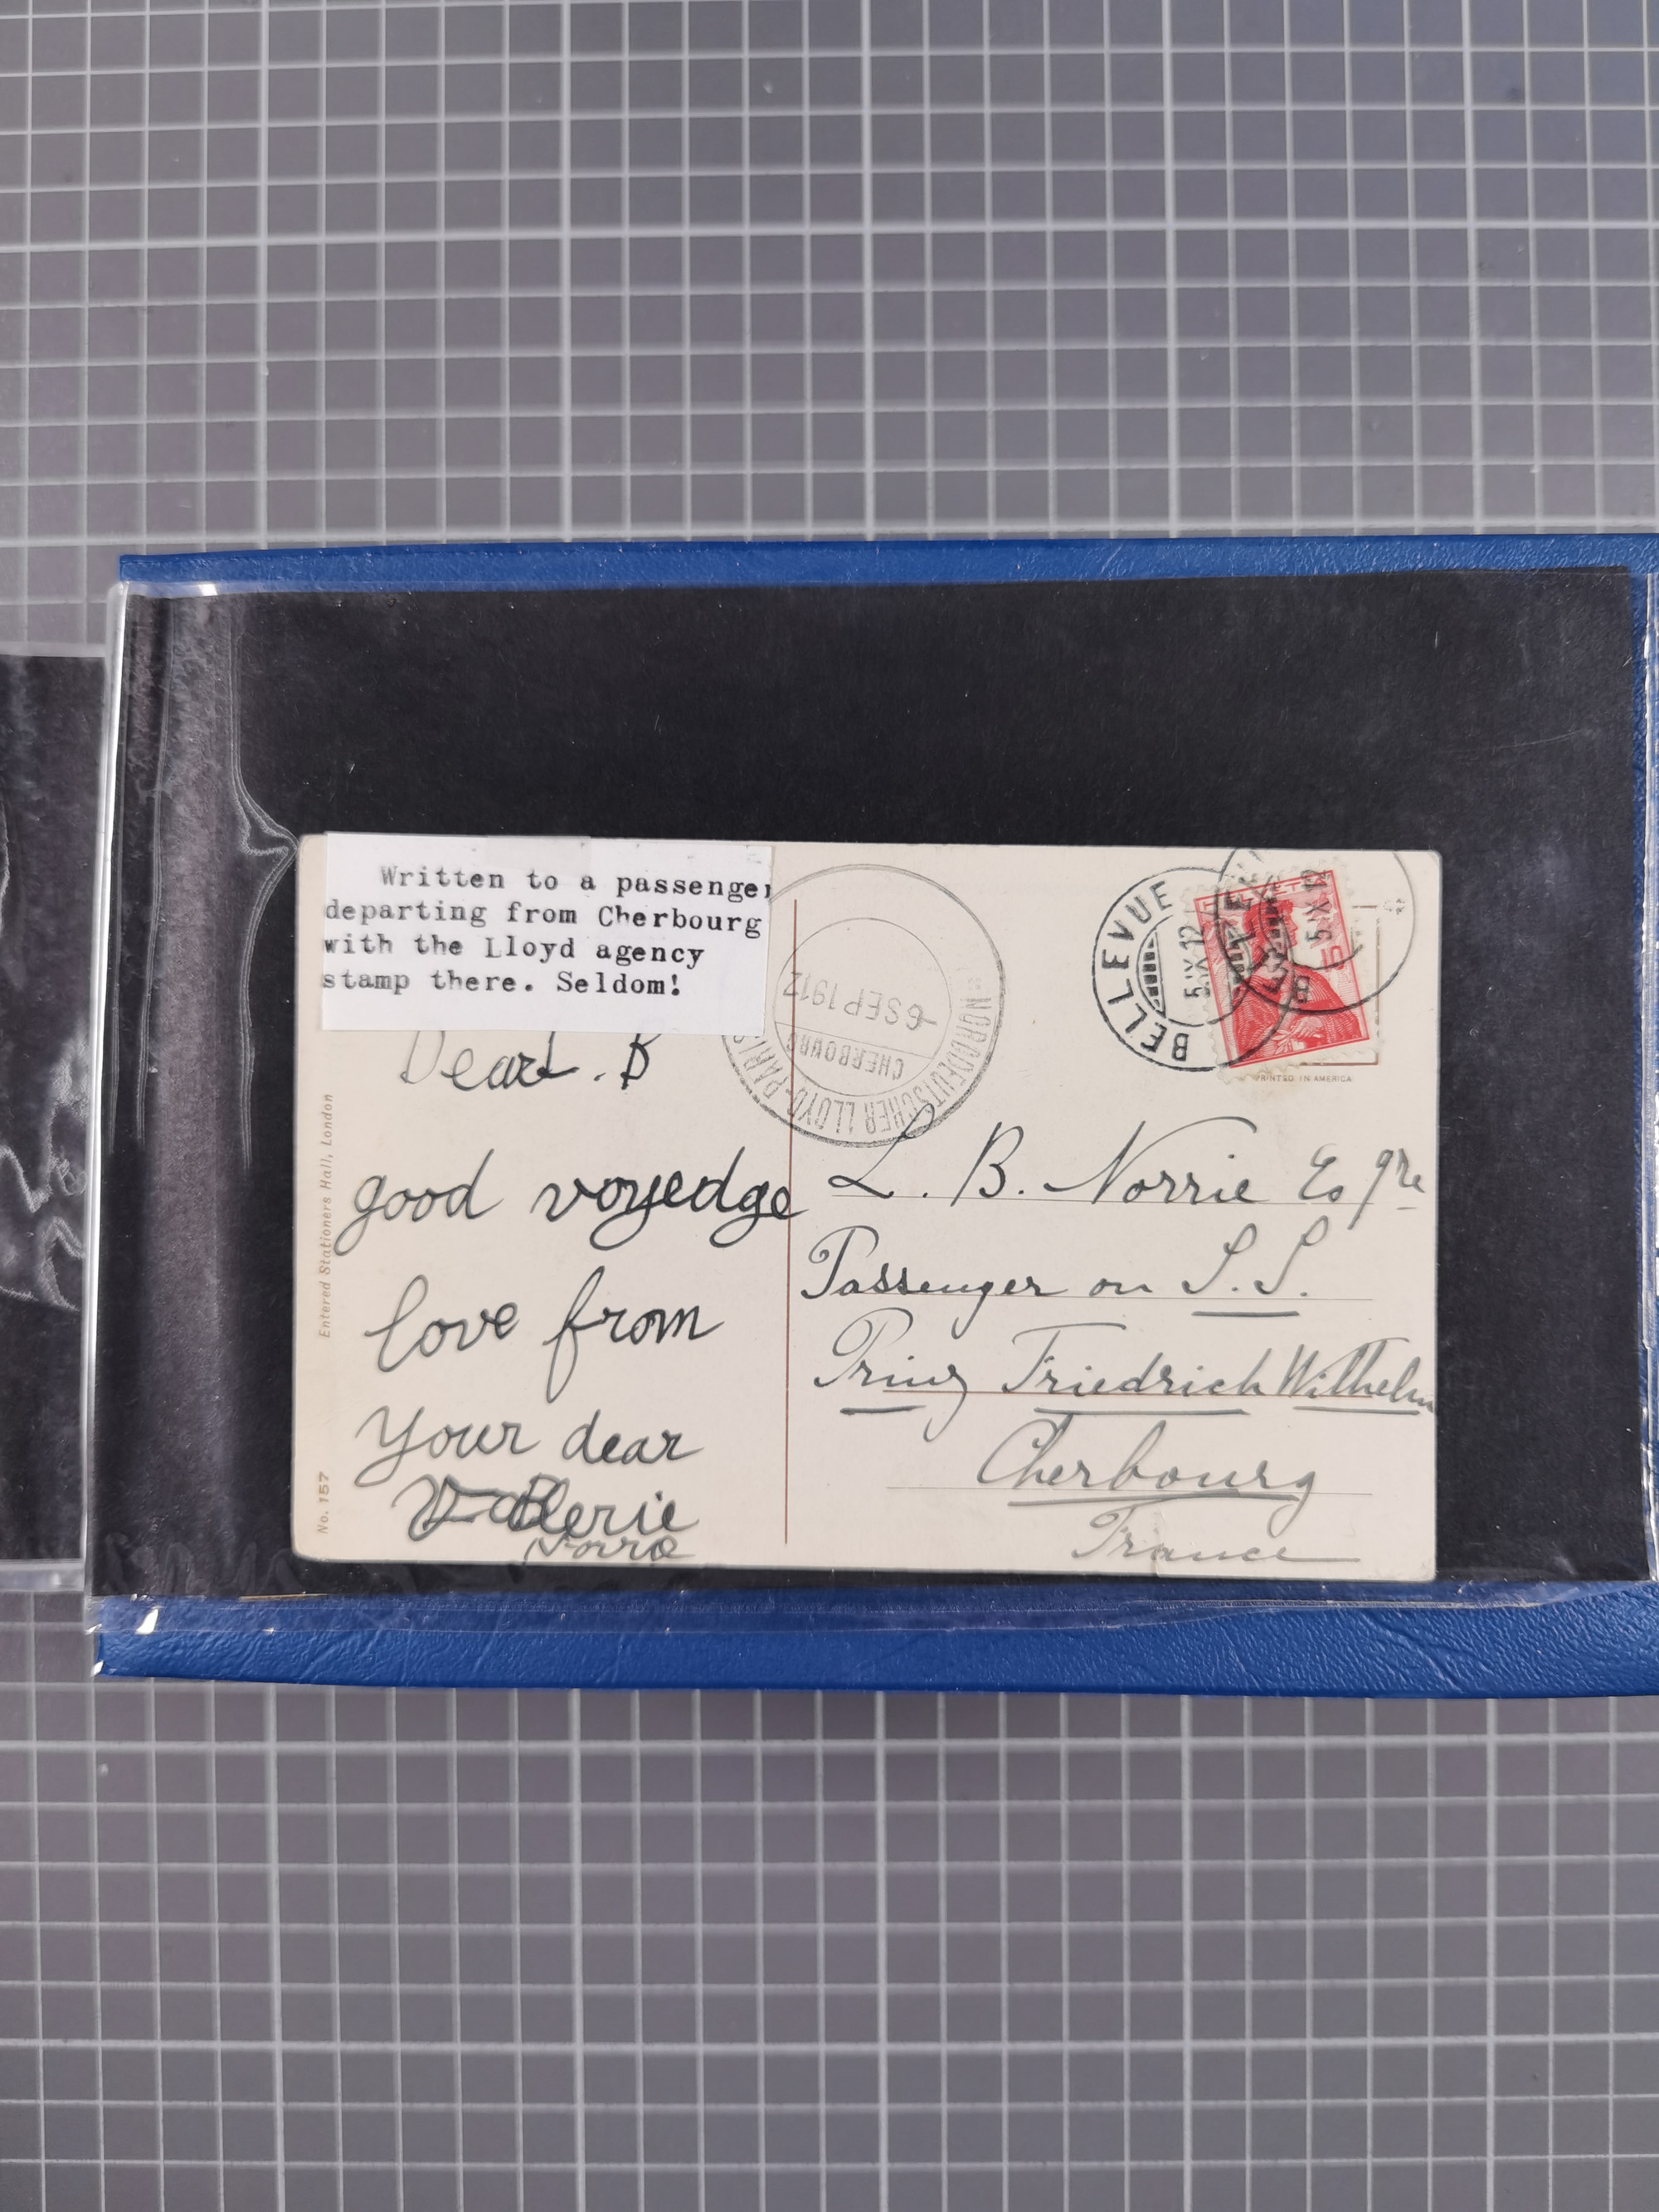 Written to a passenger
departing from Cherbourg
with the Lloyd agency
stamp there. Seldom!
NORDDEUTSCHER LLOYD-PARIS
CHERBOURG
-6 SEP 1912
BELLEVUE
5.IX.12
5.IX.12
HELVETIA
PRINTED IN AMERICA
Dear L. B
good voyedge
love from
your dear
Valerie
L. B. Norrie Esqre
Passenger on S.S.
Prinz Friedrich Wilhelm
Cherbourg
France
Entered Stationers Hall, London
No. 157